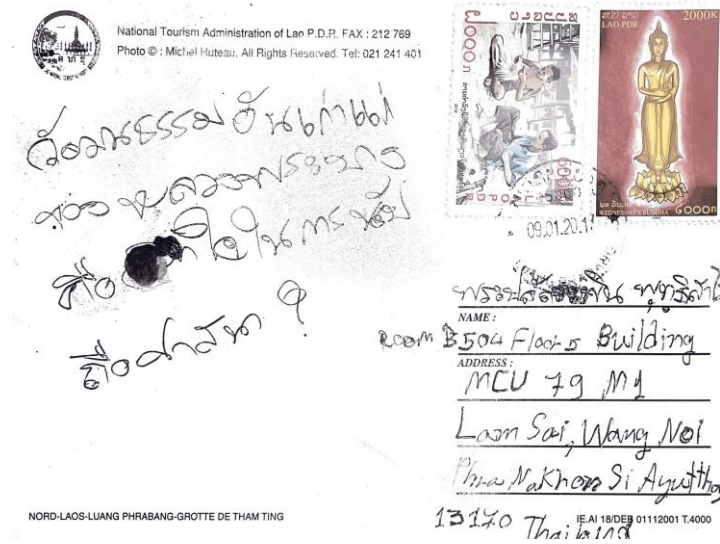 National Tourism Administration of Lao P.D.R. FAX : 212 769
Photo © : Michel Huteau, All Rights Reserved. Tel: 021 241 401
วัฒนธรรมอันเก่าแก่
ของหลวงพระบาง
คือ ใน การนับ
ถือศาสนา
LAO PDR
2000K
WEDNESDAY'S BUDDHA
09.01.20.17
NAME :
Room B504 Floor 5 Building
ADDRESS :
MCU 79 M1
Lam Sai, Wang Noi
Phra Nakhon Si Ayuttha
13170 Thailand
NORD-LAOS-LUANG PHRABANG-GROTTE DE THAM TING
IE.AI 18/DEB 01112001 T.4000